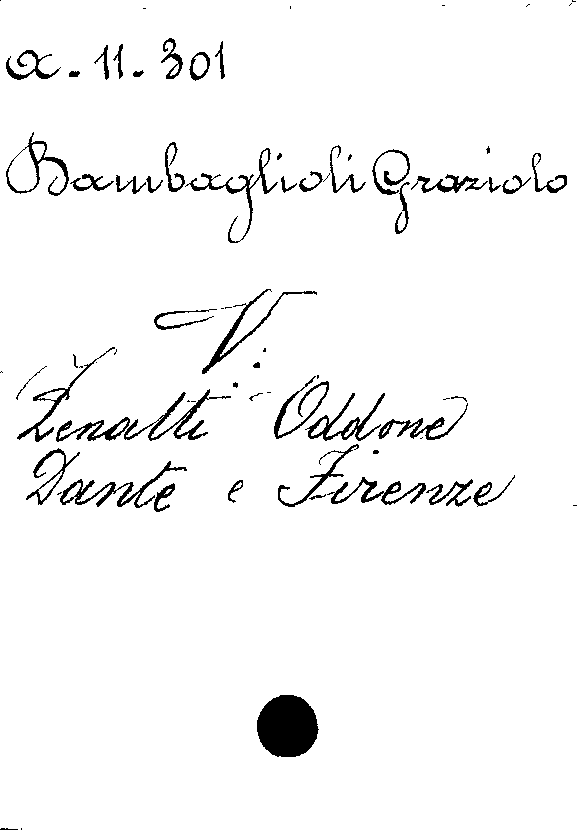 α. 11. 301
Bambaglioli Graziolo
V:
Zenatti Oddone
Dante e Firenze